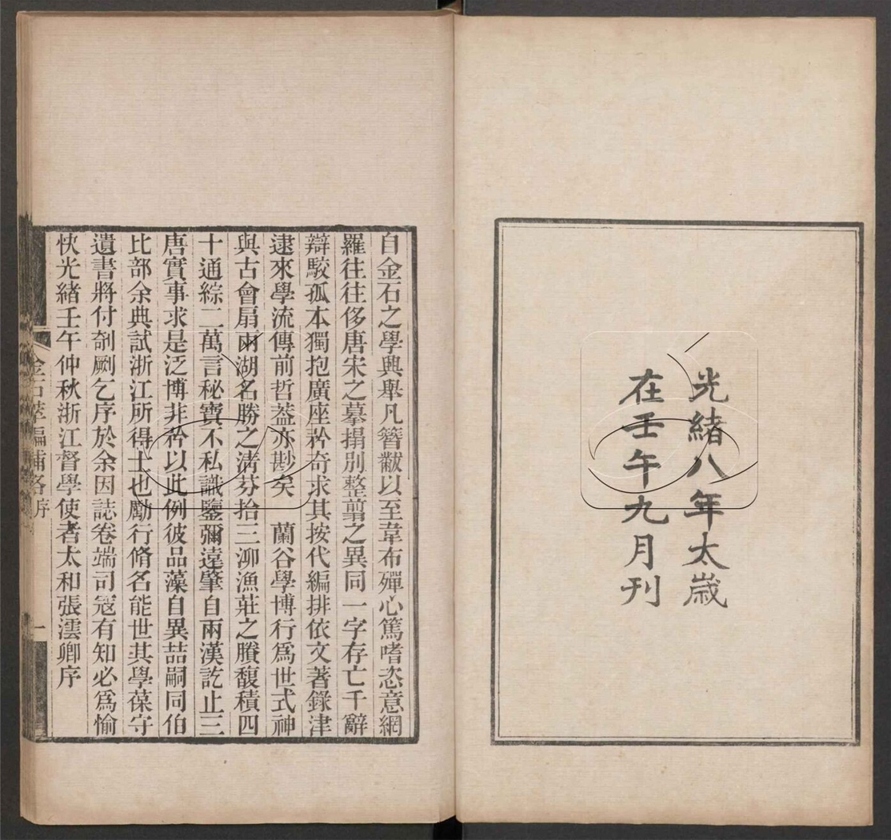 光緒八年太歲
在壬午九月刊
自金石之學興舉凡簪黻以至韋布殫心篤嗜恣意網
羅往往侈唐宋之摹搨別整翦之異同一字存亡千辭
辯駮孤本獨抱廣座矜奇求其按代編排依文著錄津
逮來學流傳前哲葢亦尠矣 蘭谷學博行爲世式神
與古會扇兩湖名勝之淸芬拾三泖漁莊之賸馥積四
十通綜二萬言秘寶不私識鑒彌遠肇自兩漢訖止三
唐實事求是泛博非矜以此例彼品藻自異喆嗣同伯
比部余典試浙江所得士也勵行脩名能世其學葆守
遺書將付剞劂乞序於余因誌卷端司寇有知必爲愉
快光緒壬午仲秋浙江督學使者太和張澐卿序
金石萃編補略序
一